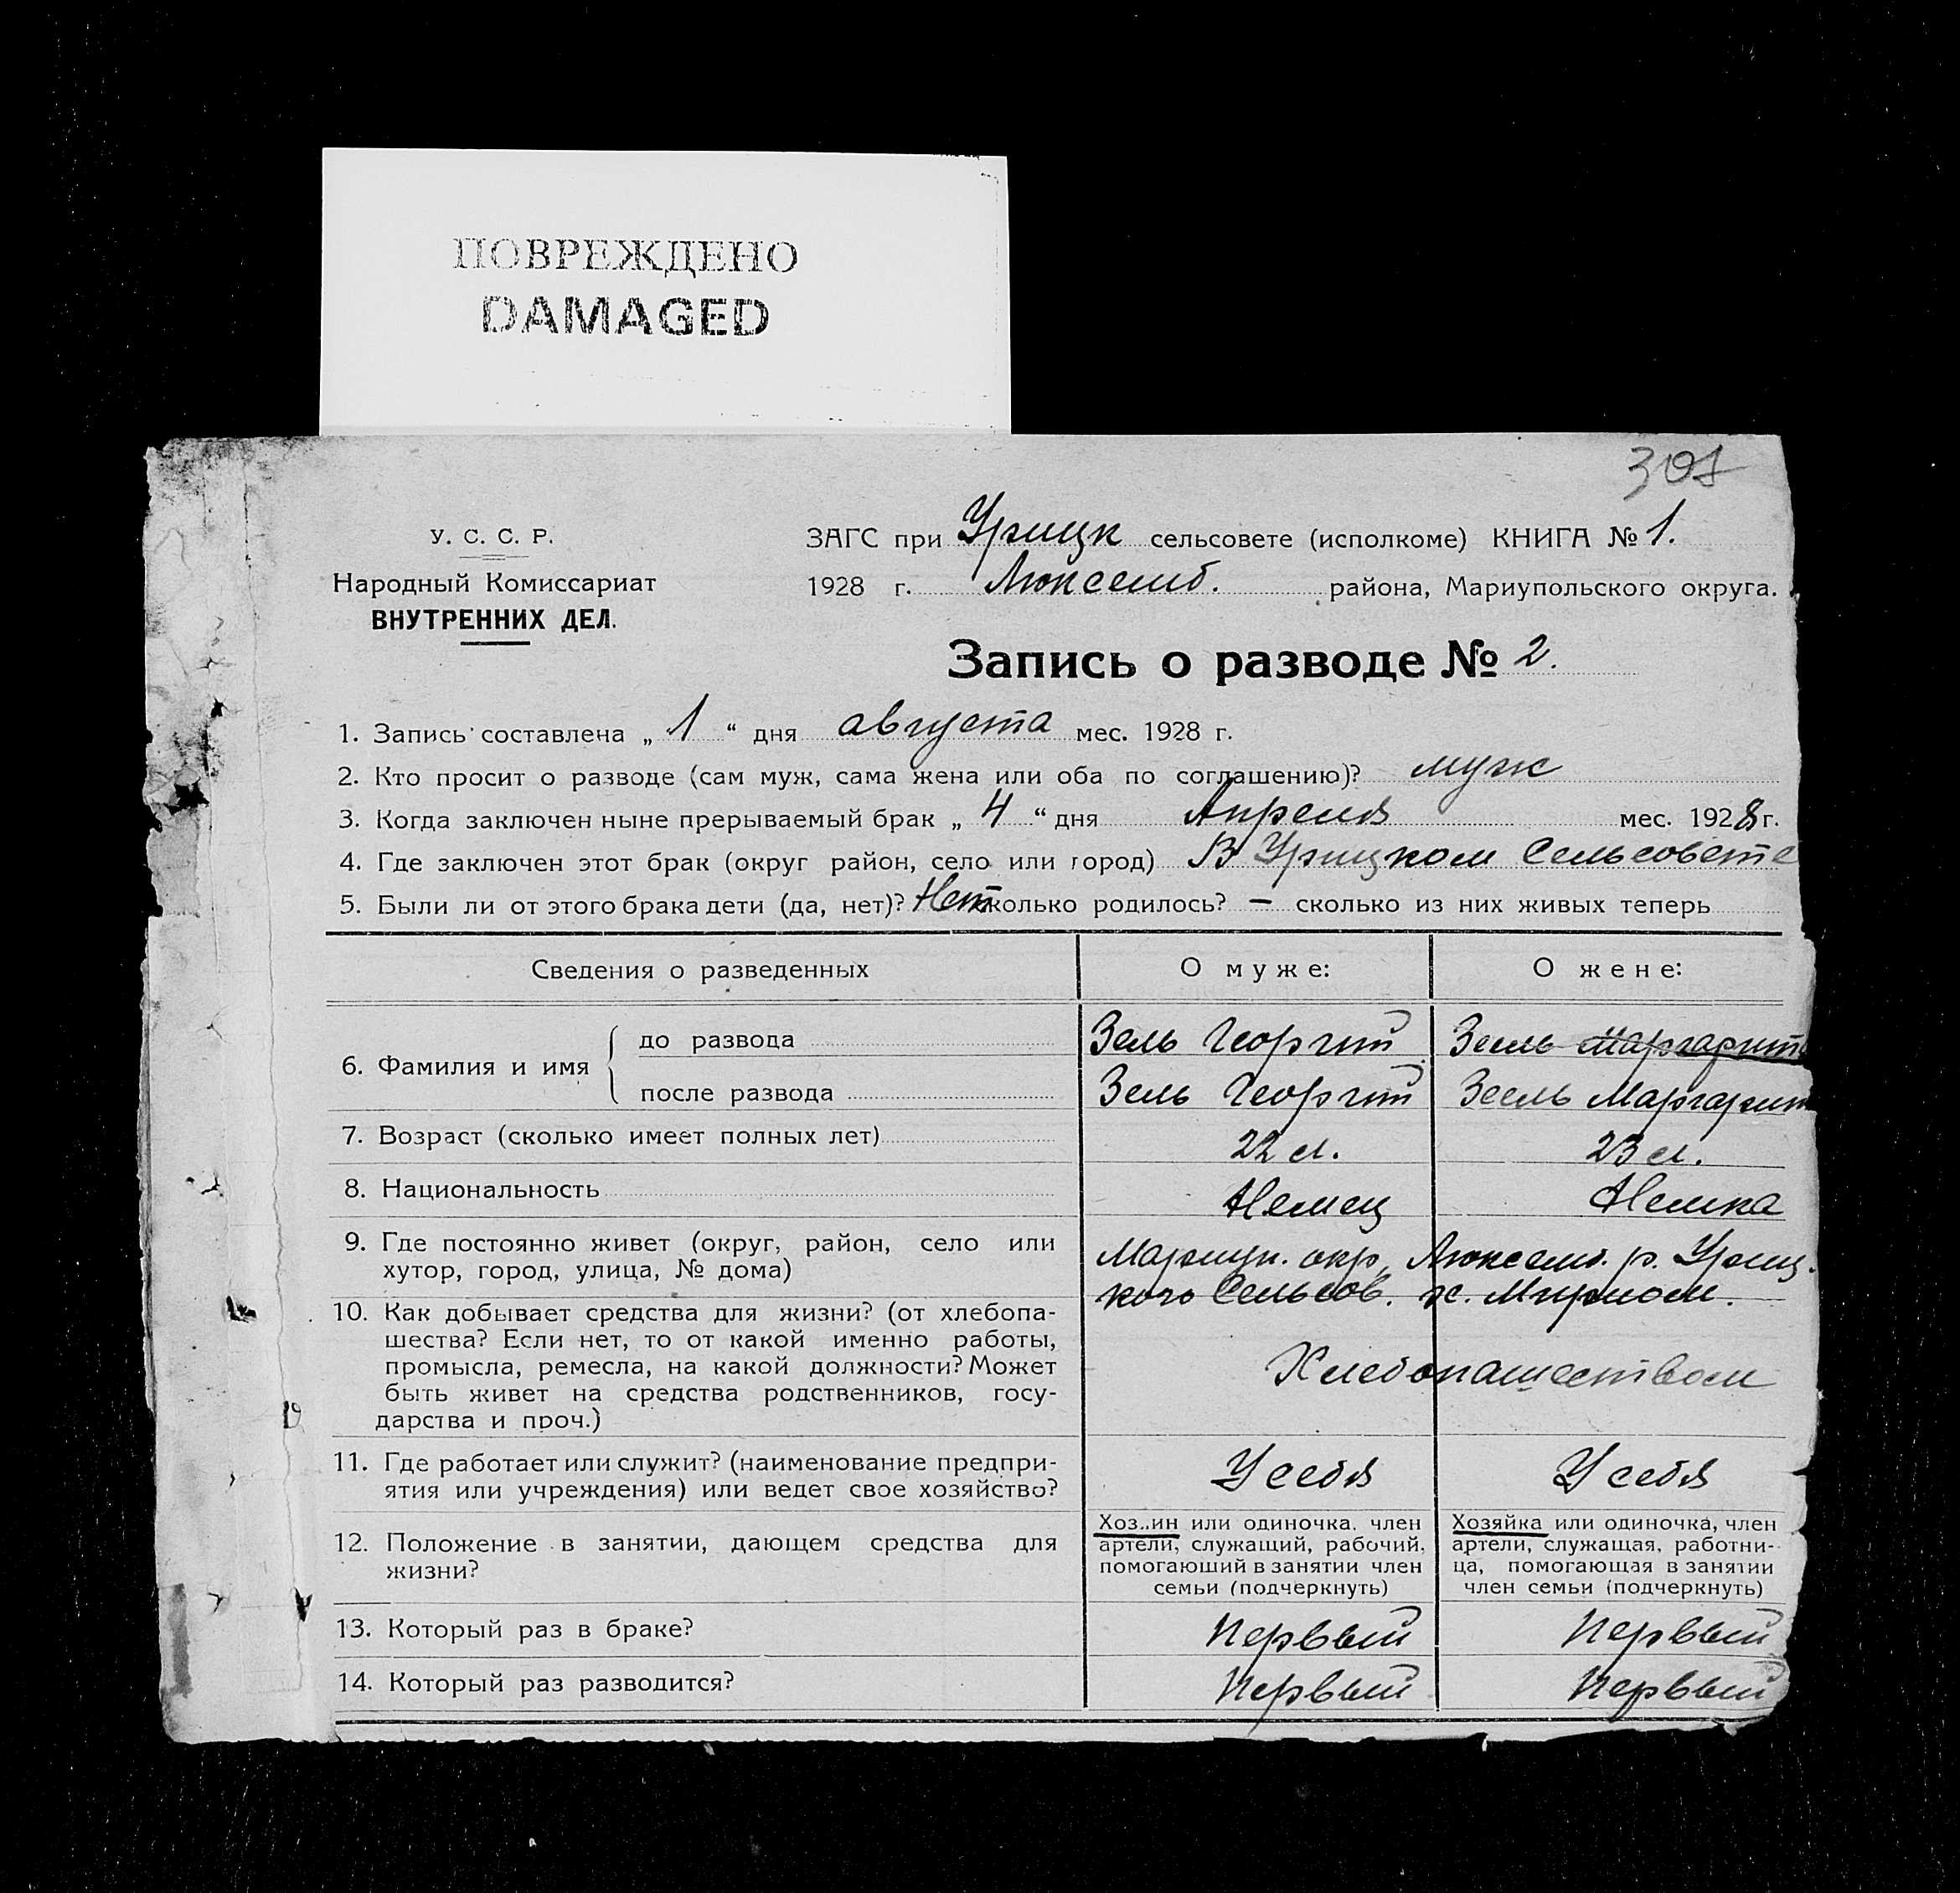 ПОВРЕЖДЕНО
DAMAGED
301
У. С. С. Р.
Народный Комиссариат
ВНУТРЕННИХ ДЕЛ.
ЗАГС при Урицк сельсовете (исполкоме) КНИГА № 1.
1928 г. Люксемб. района, Мариупольского округа.
Запись о разводе № 2.
1. Запись составлена „ 1 “ дня августа мес. 1928 г.
2. Кто просит о разводе (сам муж, сама жена или оба по соглашению)? муж
3. Когда заключен ныне прерываемый брак „ 4 “ дня Апреля мес. 1928 г.
4. Где заключен этот брак (округ район, село или город) В Урицком Сельсовете
5. Были ли от этого брака дети (да, нет)? Нет сколько родилось? — сколько из них живых теперь
Сведения о разведенных О муже: О жене:
6. Фамилия и имя
до развода Зель Георгий Зель Маргарит
после развода Зель Георгий Зеель Маргарит
7. Возраст (сколько имеет полных лет) 22 л. 23 л.
8. Национальность Немец Немка
9. Где постоянно живет (округ, район, село или
хутор, город, улица, № дома)
Мариуп. окр, Люксемб. р. Уриц.
кого Сельсов. х.
10. Как добывает средства для жизни? (от хлебопа-
шества? Если нет, то от какой именно работы,
промысла, ремесла, на какой должности? Может
быть живет на средства родственников, госу-
дарства и проч.)
Хлебопашеством
11. Где работает или служит? (наименование предпри-
ятия или учреждения) или ведет свое хозяйство?
У себя У себя
12. Положение в занятии, дающем средства для
жизни?
Хоз..ин или одиночка. член
артели, служащий, рабочий,
помогающий в занятии член
семьи (подчеркнуть)
Хозяйка или одиночка, член
артели, служащая, работни-
ца, помогающая в занятии
член семьи (подчеркнуть)
13. Который раз в браке? Первый Первый
14. Который раз разводится? Первый Первый